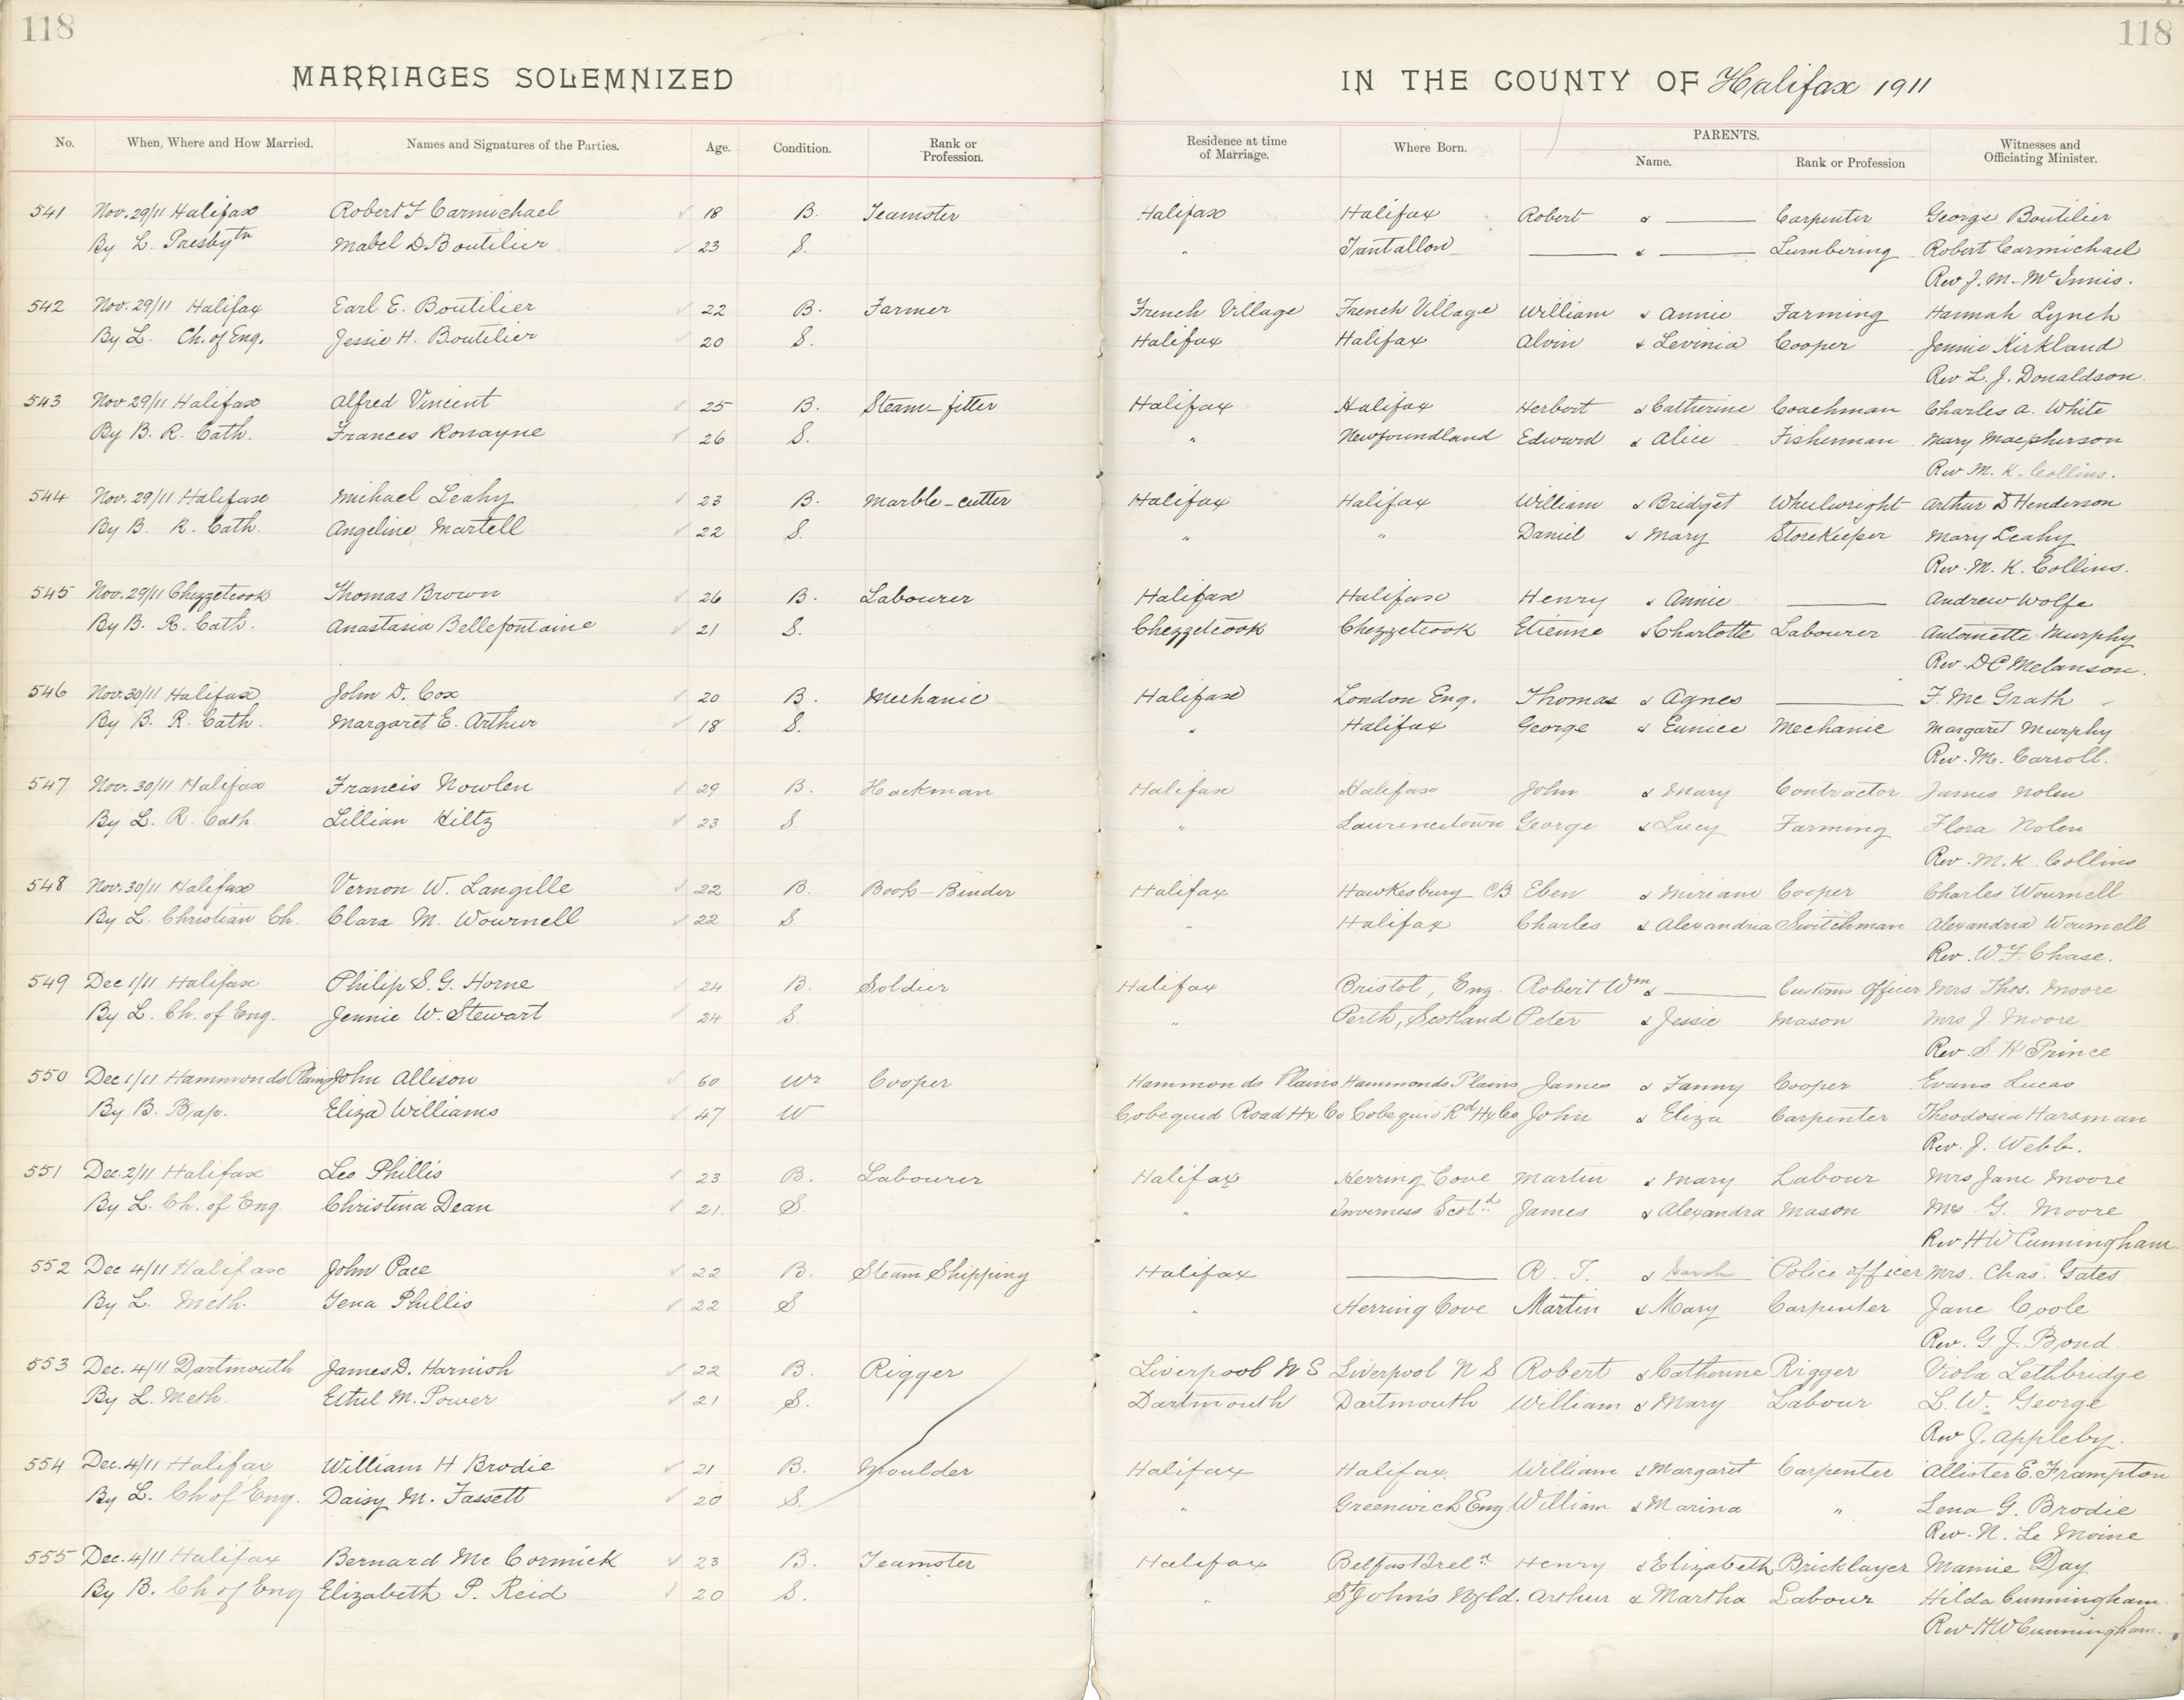 118 118
MARRIAGES SOLEMNIZED IN THE COUNTY OF Halifax 1911
No. When, Where and How Married. Names and Signatures of the Parties. Age. Condition. Rank or Profession. Residence at time of Marriage. Where Born. PARENTS. Name. Rank or Profession Witnesses and Officiating Minister.
541 Nov. 29/11 Halifax Robert F Carmichael 18 B. Teamster Halifax Halifax Robert & — Carpenter George Boutilier
By L. Presbytn Mabel D. Boutilier 23 S. " Tantallon — & — Lumbering Robert Carmichael
Rev J. M. McInnis.
542 Nov. 29/11 Halifax Earl E. Boutilier 22 B. Farmer French Village French Village William & Annie Farming Hannah Lynch
By L. Ch. of Eng. Jessie H. Boutilier 20 S. Halifax Halifax Alvin & Levinia Cooper Jennie Kirkland
Rev L. J. Donaldson.
543 Nov 29/11 Halifax Alfred Vincent 25 B. Steam-fitter Halifax Halifax Herbert & Catherine Coachman Charles A. White
By B. R. Cath. Frances Ronayne 26 S. " Newfoundland Edward & Alice Fisherman Mary Macpherson
Rev M. K. Collins.
544 Nov. 29/11 Halifax Michael Leahy 23 B. Marble-cutter Halifax Halifax William & Bridget Wheelwright Arthur D Henderson
By B. R. Cath. Angeline Martell 22 S. " " Daniel & Mary Storekeeper Mary Leahy
Rev. M. K. Collins.
545 Nov. 29/11 Chezzetcook Thomas Brown 26 B. Labourer Halifax Halifax Henry & Annie — Andrew Wolfe
By B. R. Cath. Anastasia Bellefontaine 21 S. Chezzetcook Chezzetcook Etienne & Charlotte Labourer Antoinette Murphy
Rev. D C Melanson.
546 Nov. 30/11 Halifax John D. Cox 20 B. Mechanic Halifax London Eng. Thomas & Agnes — F. Mc Grath
By B. R. Cath. Margaret E. Arthur 18 S. " Halifax George & Eunice Mechanic Margaret Murphy
Rev. M. Carroll.
547 Nov. 30/11 Halifax Francis Nowlen 29 B. Hackman Halifax Halifax John & Mary Contractor James Nolen
By L. R. Cath. Lillian Hiltz 23 S. " Lawrencetown George & Lucy Farming Flora Nolen
Rev. M. K. Collins
548 Nov. 30/11 Halifax Vernon W. Langille 22 B. Book-Binder Halifax Hawkesbury C/B Eben & Miriam Cooper Charles Wournell
By L. Christian Ch. Clara M. Wournell 22 S " Halifax Charles & Alexandria Switchman Alexandria Wournell
Rev. W. F. Chase.
549 Dec 1/11 Halifax Philip S. G. Horne 24 B. Soldier Halifax Bristol, Eng. Robert Wm & — Customs Officer Mrs Thos. Moore
By L. Ch. of Eng. Jennie W. Stewart 24 S. " Perth, Scotland Peter & Jessie Mason Mrs J. Moore
Rev. S H Prince
550 Dec 1/11 Hammonds Plains John Allison 60 Wr Cooper Hammonds Plains Hammonds Plains James & Fanny Cooper Evans Lucas
By B. Bap. Eliza Williams 47 W Cobequid Road Hx Co Cobequid Rd Hx Co John & Eliza Carpenter Theodosia Harsman
Rev. J. Webb.
551 Dec. 2/11 Halifax Leo Phillis 23 B. Labourer Halifax Herring Cove Martin & Mary Labour Mrs Jane Moore
By L. Ch. of Eng. Christina Dean 21. S. " Inverness Scotd James & Alexandra Mason Mrs G. Moore
Rev H W Cunningham.
552 Dec 4/11 Halifax John Pace 22 B. Steam Shipping Halifax — R. T. & Sarah Police officer Mrs. Chas. Gates
By L. Meth. Tena Phillis 22 S " Herring Cove Martin & Mary Carpenter Jane Coole
Rev. G. J. Bond.
553 Dec. 4/11 Dartmouth James D. Harnish 22 B. Rigger Liverpool N S Liverpool N S Robert & Catherine Rigger Viola Lethbridge
By L. Meth. Ethel M. Power 21 S. Dartmouth Dartmouth William & Mary Labour L. W. George
Rev J. Appleby.
554 Dec. 4/11 Halifax William H Brodie 21 B. Moulder Halifax Halifax. William & Margaret Carpenter Allister E. Frampton
By L. Ch of Eng. Daisy M. Fassett 20 S. " Greenwich Eng William & Marina " Lena G. Brodie
Rev. N. Le Moine
555 Dec. 4/11 Halifax Bernard Mc Cormick 23 B. Teamster Halifax Belfast Ireld Henry & Elizabeth Bricklayer Mamie Day
By B. Ch of Eng Elizabeth P. Reid 20 S. " St John's Nfld. Arthur & Martha Labour Hilda Cunningham.
Rev H W Cunningham.